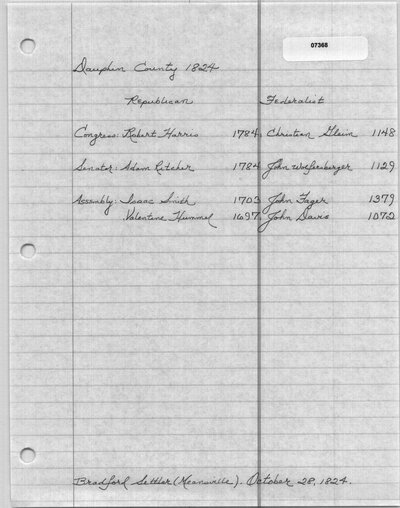 07368
Dauphin County 1824
Republican Federalist
Congress: Robert Harris 1784 Christian Gleim 1148
Senator: Adam Ritcher 1784 John Wolfersberger 1129
Assembly: Isaac Smith 1703 John Fager 1379
Valentine Hummel 1697 John Davis 1072
Bradford Settler (Meansville). October 28, 1824.